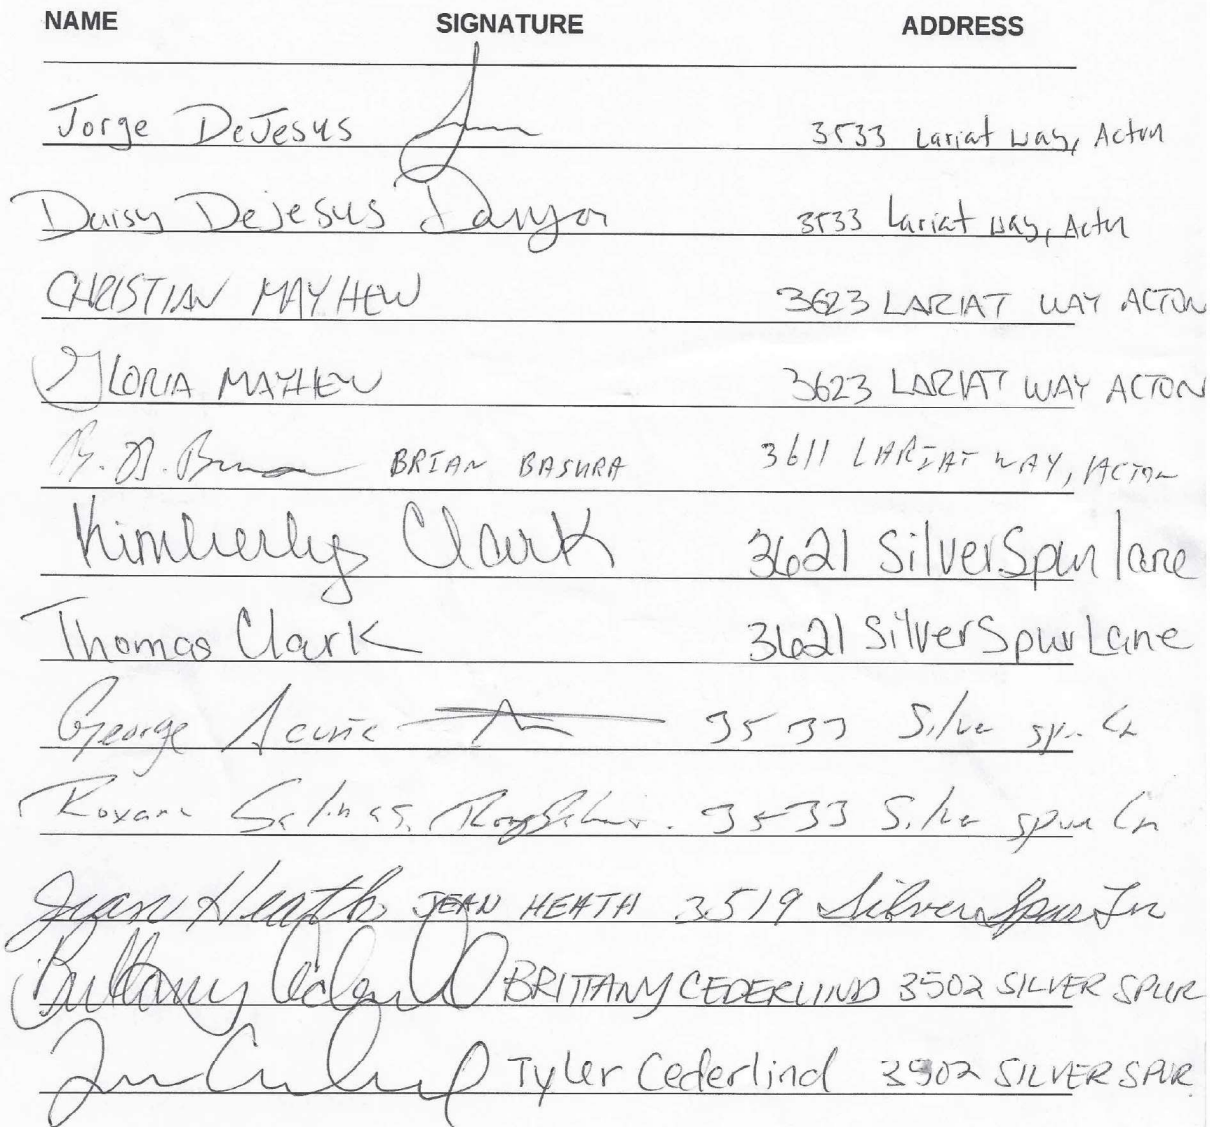 NAME SIGNATURE ADDRESS
Jorge DeJesus 3533 Lariat way, Acton
Daisy DeJesus 3533 Lariat way, Acton
CHRISTIAN MAYHEW 3623 LARIAT WAY ACTON
GLORIA MAYHEW 3623 LARIAT WAY ACTON
BRIAN BASURA 3611 LARIAT WAY, ACTON
Kimberly Clark 3621 Silver Spur lane
Thomas Clark 3621 Silver Spur Lane
George Acuña 3533 Silver spur Ln
Roxana Salinas 3533 Silver spur Ln
Jean Heath JEAN HEATH 3519 Silver Spur Ln
Brittany Cederlind BRITTANY CEDERLIND 3502 SILVER SPUR
Tyler Cederlind 3502 SILVER SPUR